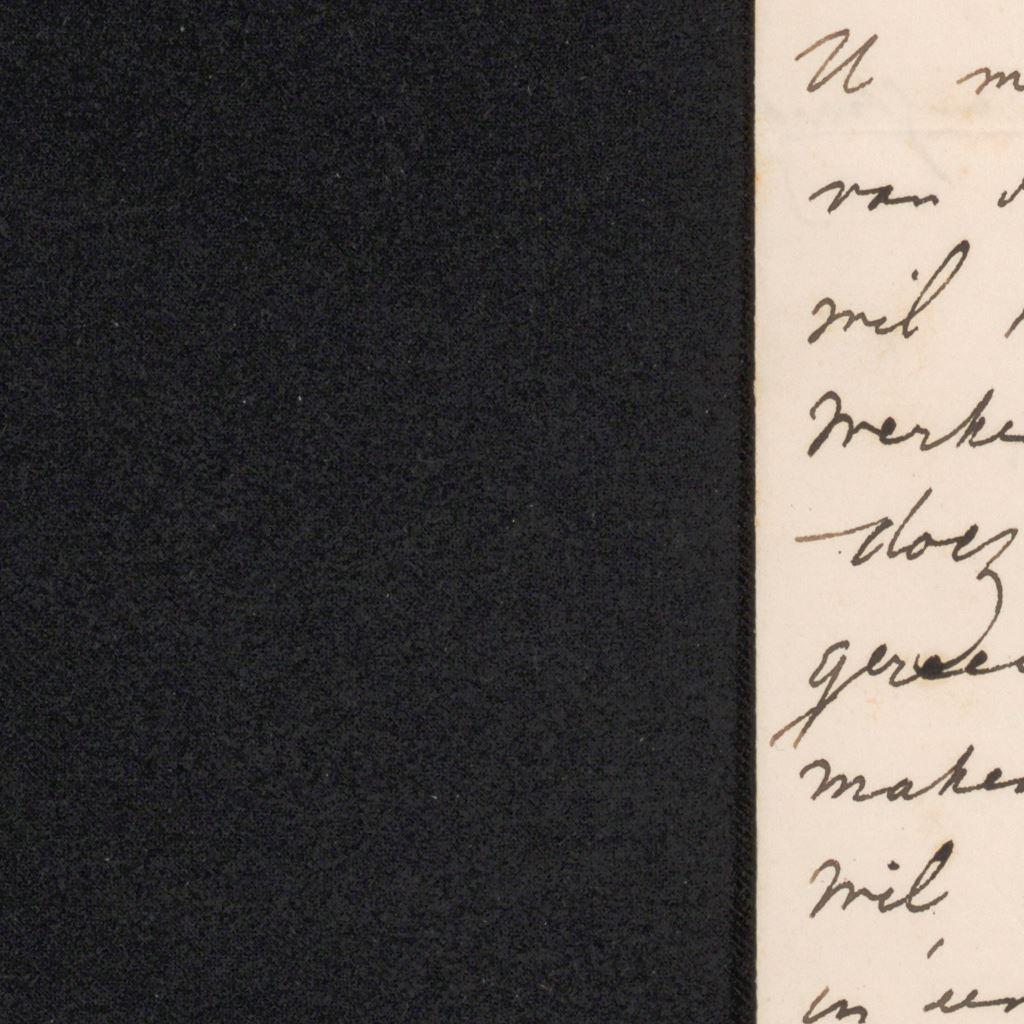 U m
van d
wil
Werke
doez
geree
maken
Wil
in één